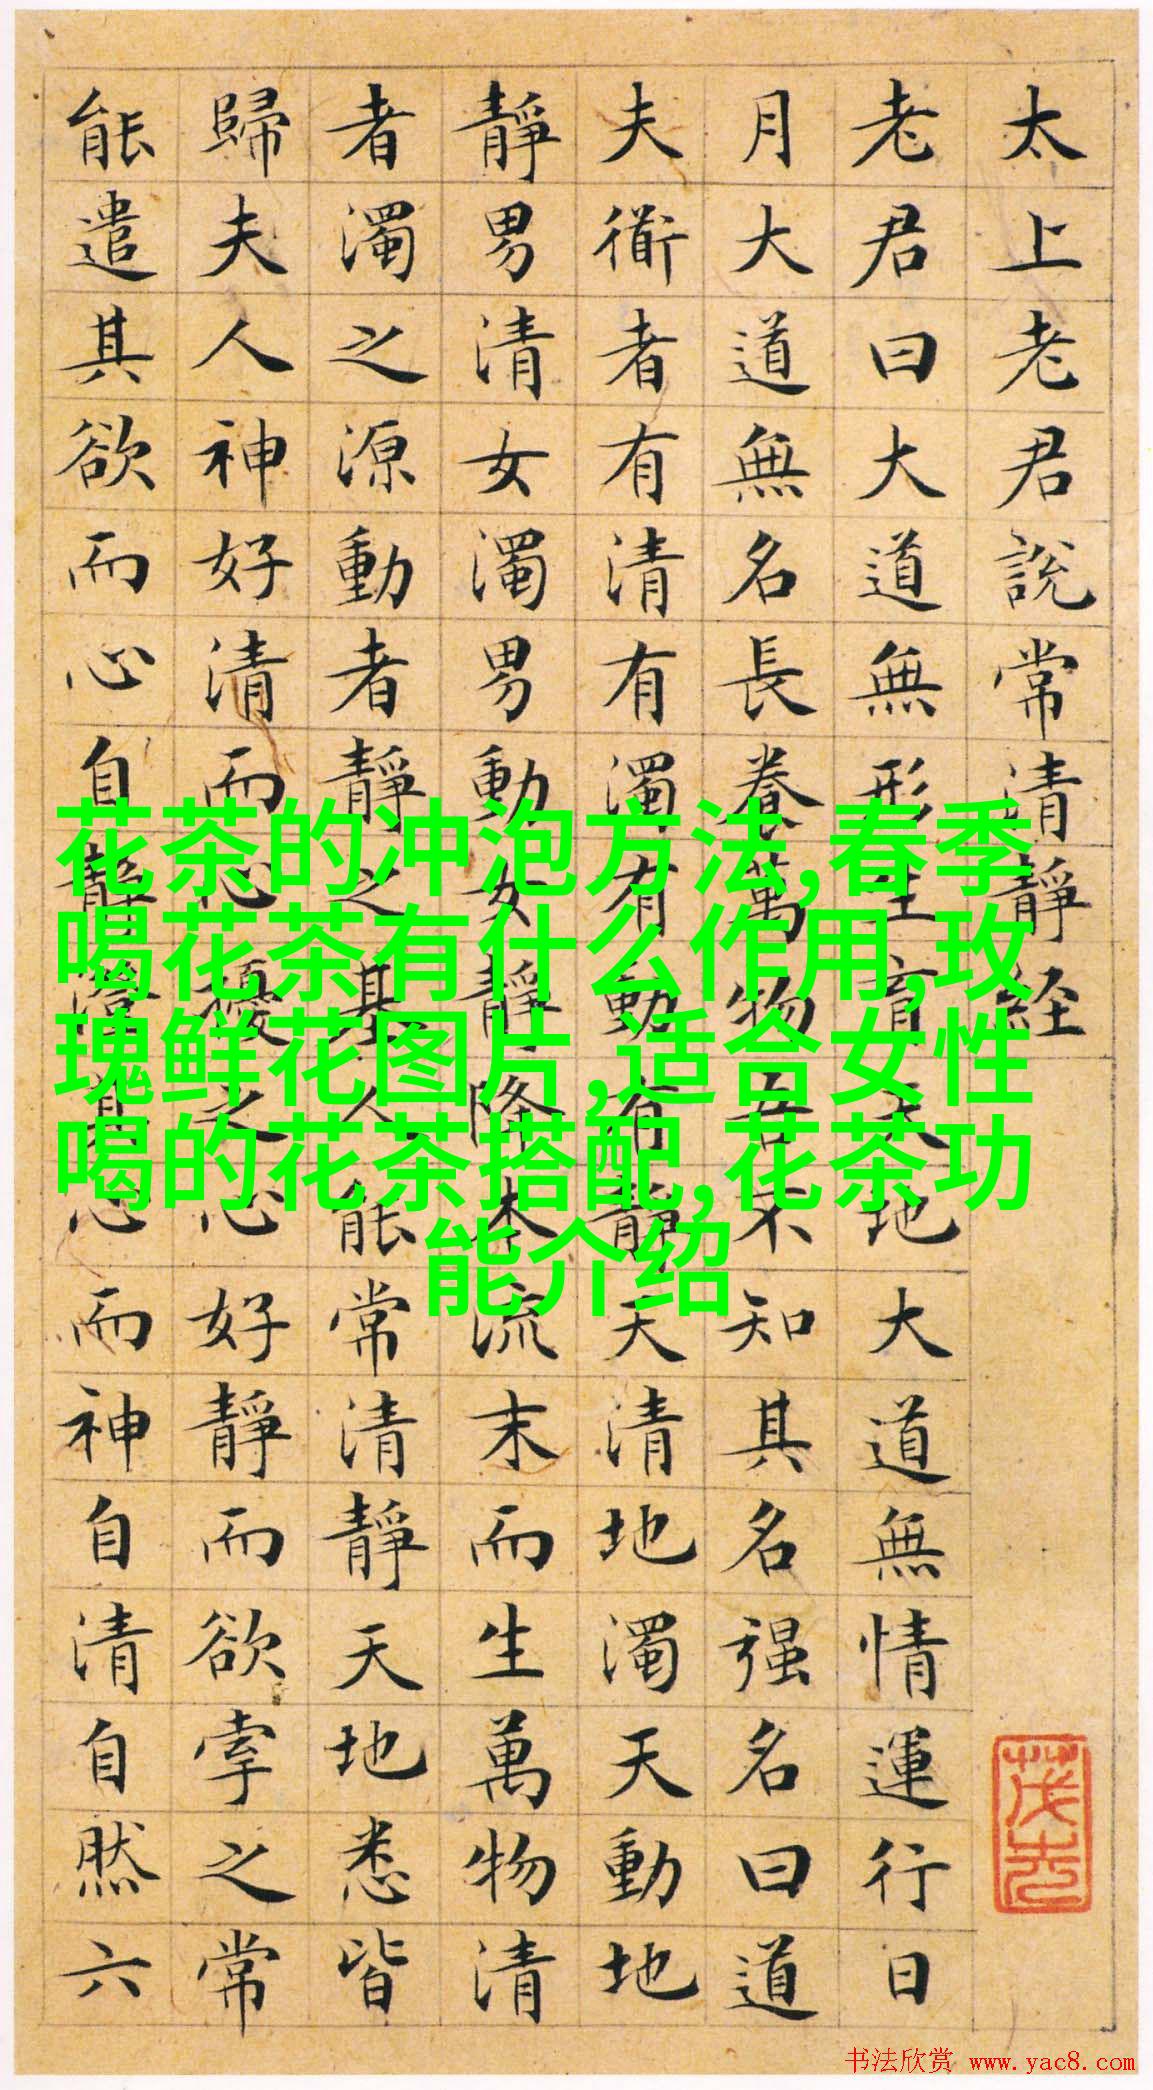 太上老君說常清靜経
老君曰大道無形生育天地大道無情運行日
月大道無名長養萬物吾不知其名强名曰道
夫衜者有清有濁有動有靜天清地濁天動地
靜男清女濁男動女靜降本流末而生萬物清
者濁之源動者靜之基人能常清靜天地悉皆
歸夫人神好清而心擾之心好靜而欲牽之常
能遣其欲而心自靜澄其心而神自清自然六
花茶的冲泡方法,春季
喝花茶有什么作用,玫
瑰鲜花图片,适合女性
喝的花茶搭配,花茶功
能介绍
书法欣赏 www.yac8.com